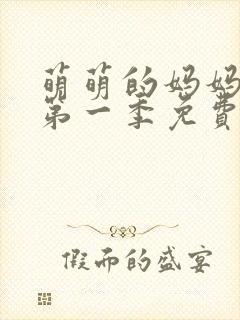 萌萌的妈妈
第一季免費
假而的盛宴